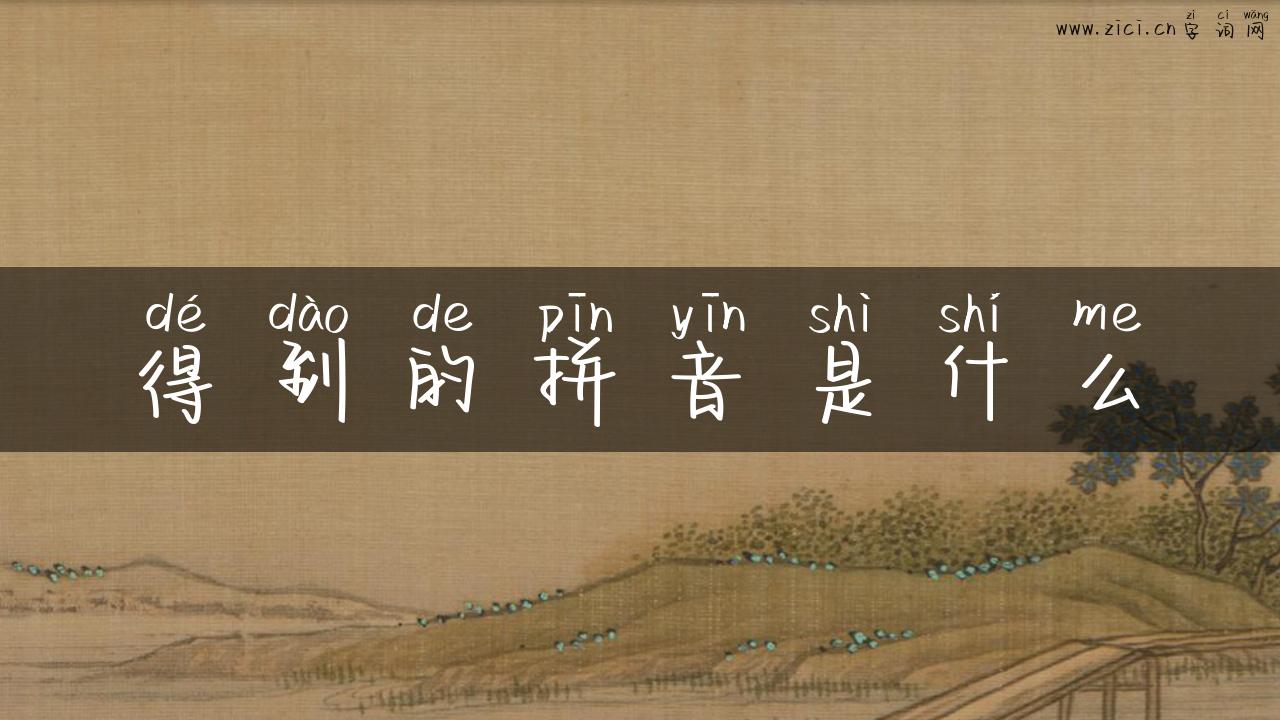 zì cí wǎng
www.zici.cn字词网
dé dào de pīn yīn shì shí me
得到的拼音是什么